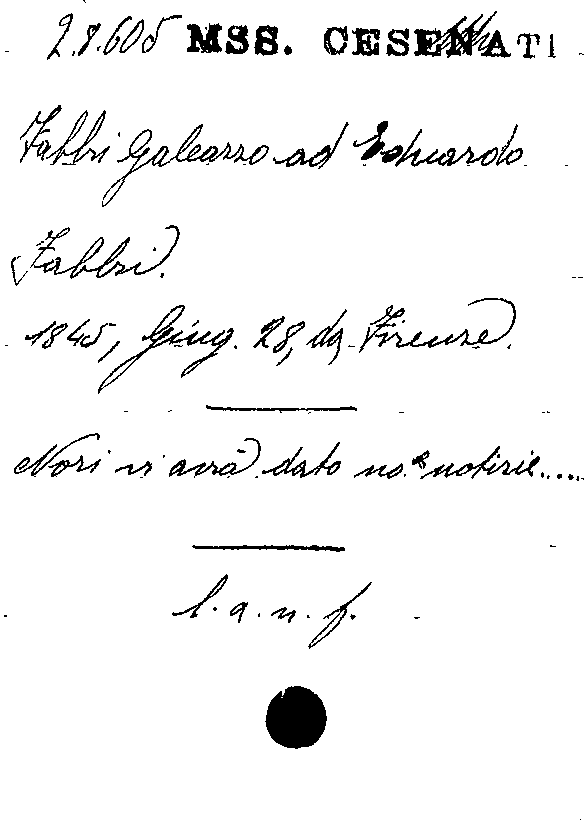 2.8.605 MSS. CESENATI
Fabbri Galeazzo ad Eduardo
Fabbri.
1845, Giug. 28, da Firenze.
Nori vi avrà dato no.e notizie.....
l. a. n. f.